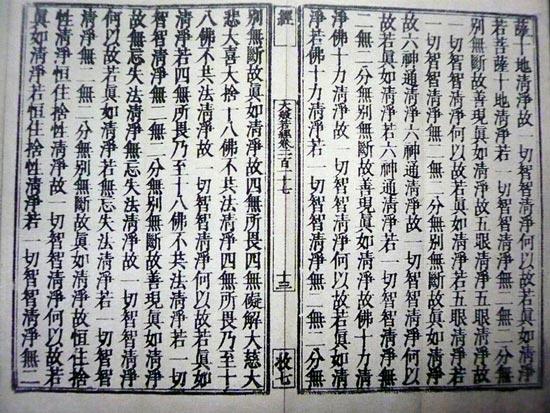 薩十地清淨故一切智智清淨何以故若眞如清淨
若菩薩十地清淨若一切智智清淨無二無二分無
別無斷故善現眞如清淨故五眼清淨五眼清淨故
一切智智清淨何以故若眞如清淨若五眼清淨若
一切智智清淨無二無二分無別無斷故眞如清淨
故六神通清淨六神通清淨故一切智智清淨何以
故若眞如清淨若六神通清淨若一切智智清淨無
二無二分無別無斷故善現眞如清淨故佛十力清
淨佛十力清淨故一切智智清淨何以故若眞如清
淨若佛十力清淨若一切智智清淨無二無二分無
經
大般若經卷二百二十七
十三
別無斷故眞如清淨故四無所畏四無礙解大慈大
悲大喜大捨十八佛不共法清淨四無所畏乃至十
八佛不共法清淨故一切智智清淨何以故若眞如
清淨若四無所畏乃至十八佛不共法清淨若一切
智智清淨無二無二分無別無斷故善現眞如清淨
故無忘失法清淨無忘失法清淨故一切智智清淨
何以故若眞如清淨若無忘失法清淨若一切智智
清淨無二無二分無別無斷故眞如清淨故恒住捨
性清淨恒住捨性清淨故一切智智清淨何以故若
眞如清淨若恒住捨性清淨若一切智智清淨無二